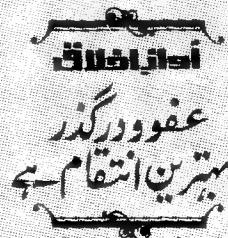 آداب اخلاق
عفو و درگذر
بہترین انتقام ہے